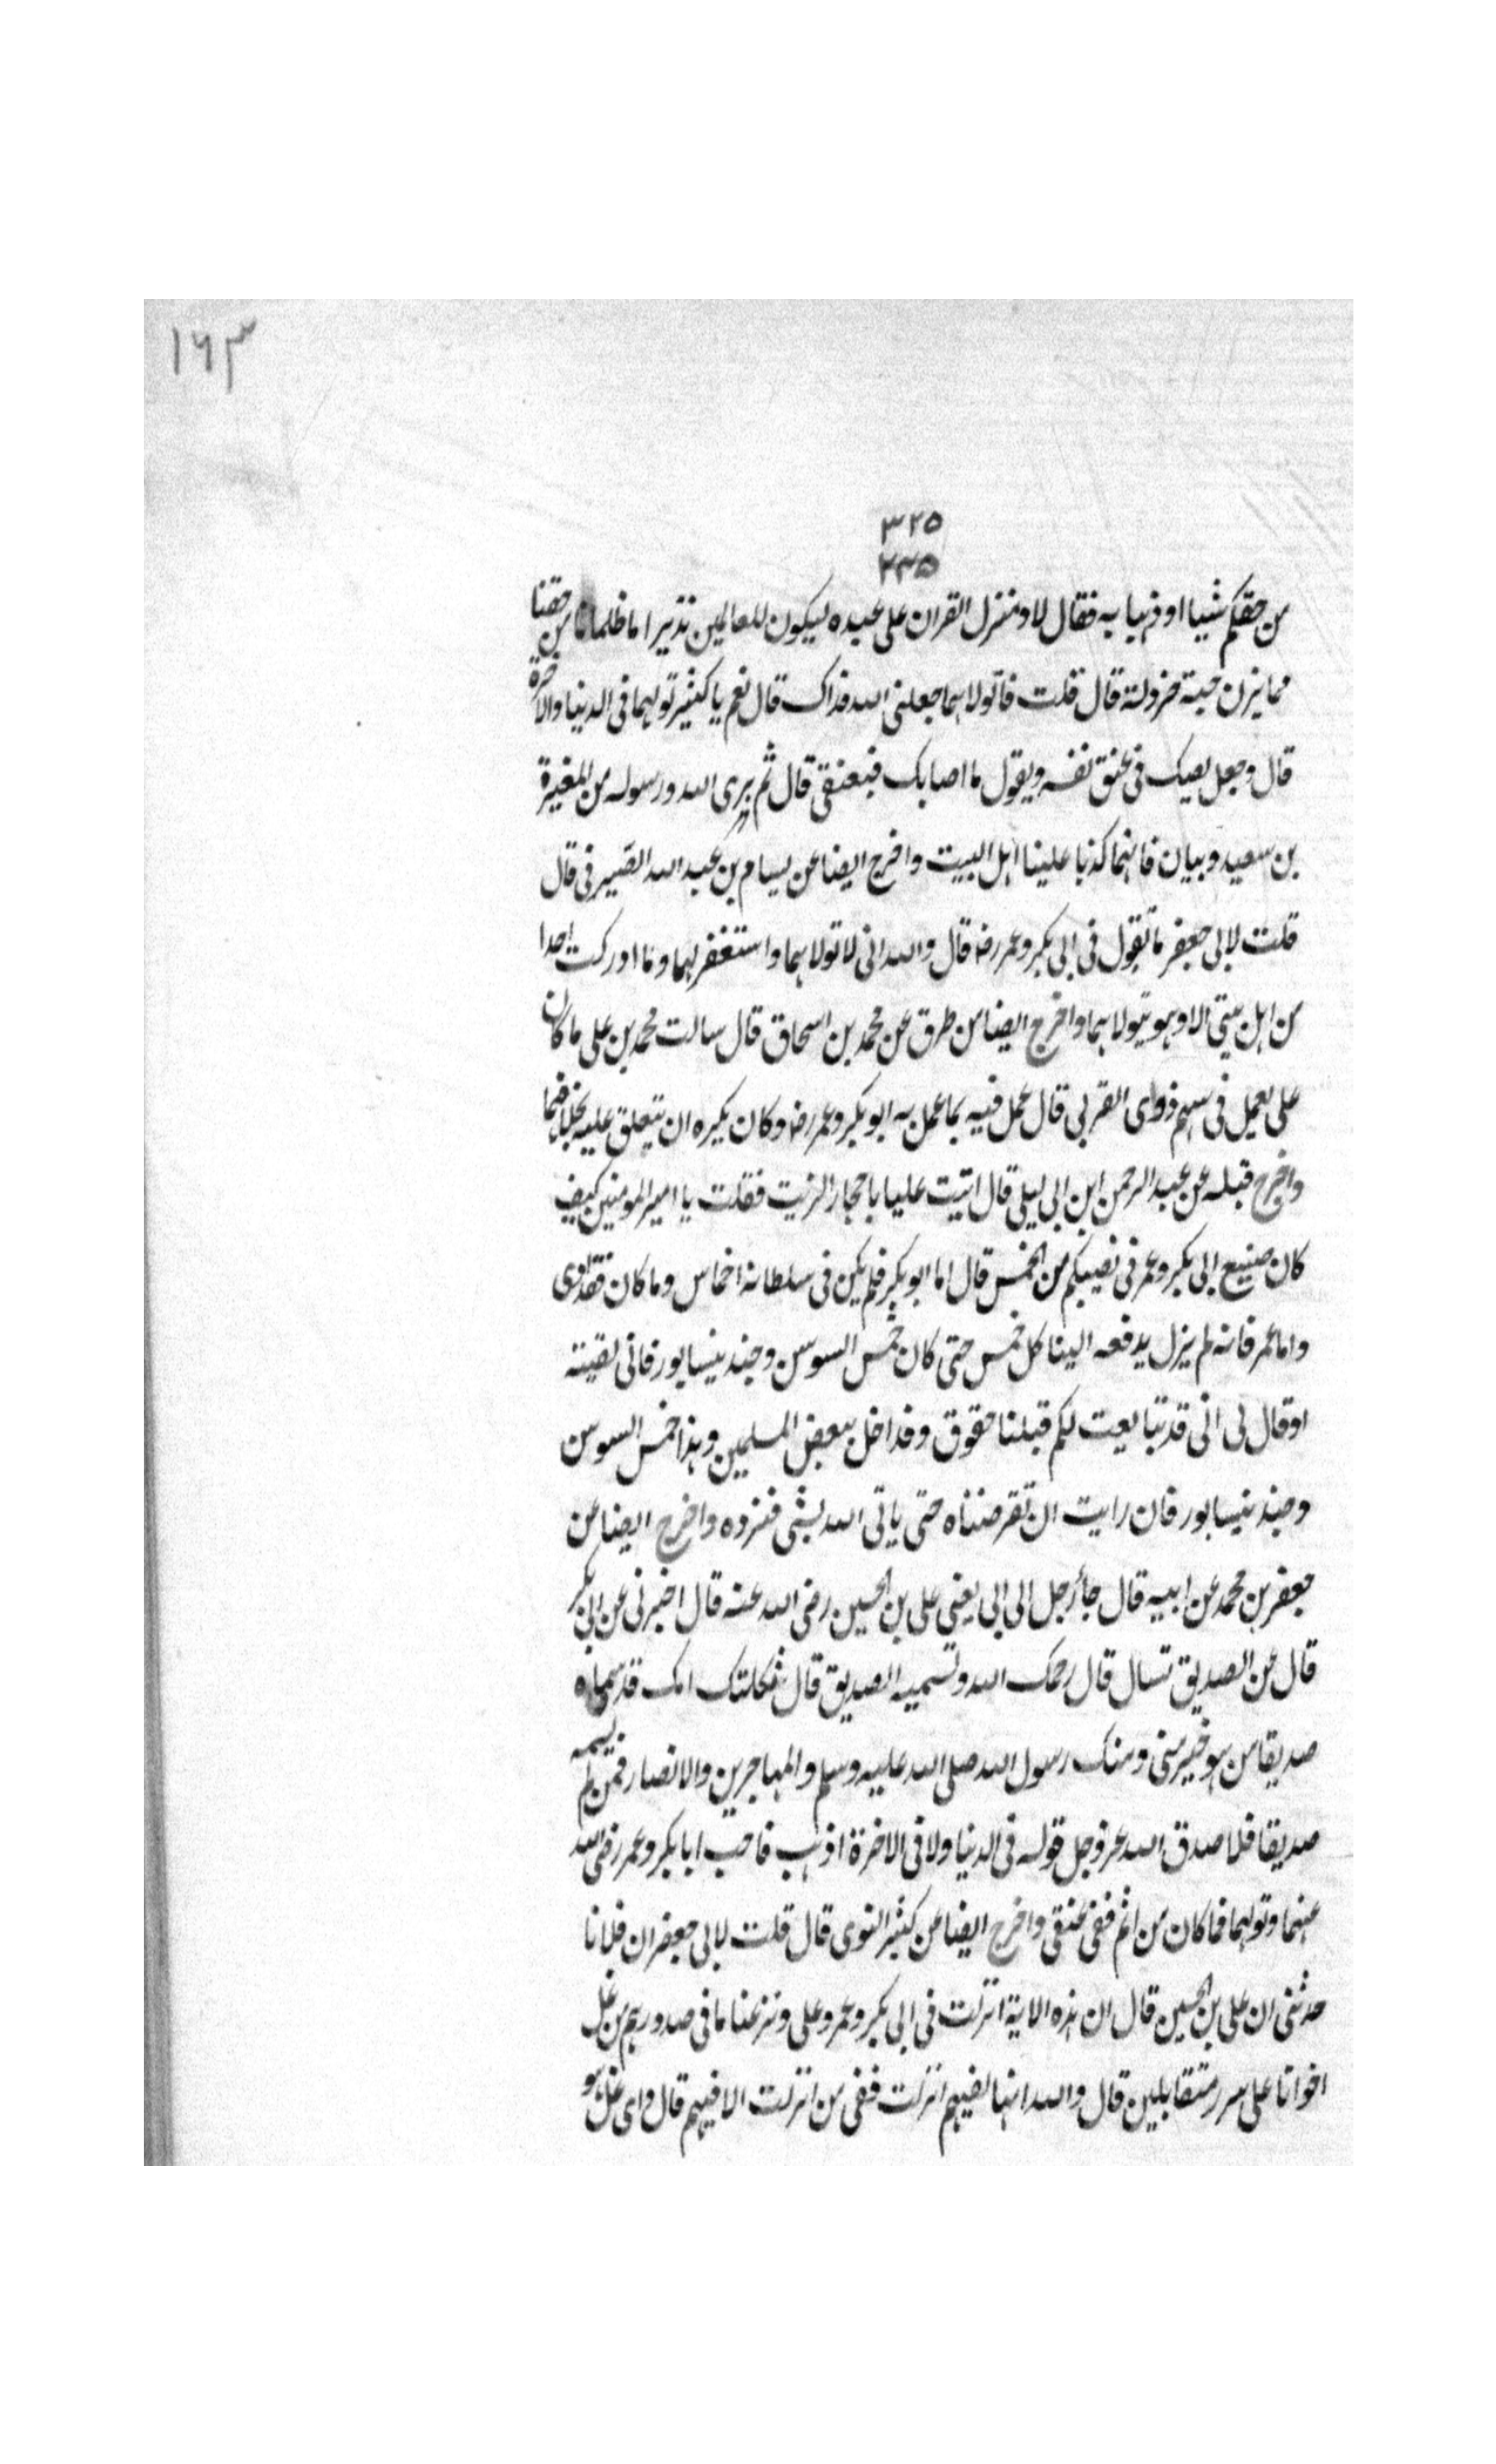 ١٦٣
٣٢٥
٣٣٥
من حقكم شيئا او ذهبا به فقال لا ومنزل القران على عبده ليكون للعالمين نذيرا ما ظلمانا من حقنا
مما يزن حبة خردلة قال قلت فاتولاهما جعلنى الله فداك قال نعم يا كثير تولهما فى الدنيا والاخرة
قال وجعل يصك فى عنق نفسه ويقول ما اصابك فبعنقى قال ثم برى الله ورسوله من المغيرة
بن سعيد وبيان فانهما كذبا علينا اهل البيت واخرج ايضا عن بسام بن عبد الله الصيرفى قال
قلت لابى جعفر ما تقول فى ابى بكر وعمر رض قال والله انى لاتولاهما واستغفر لهما وما ادركت احدا
من اهل بيتى الا وهو يتولاهما واخرج ايضا من طرق عن محمد بن اسحاق قال سالت محمد بن على ما كان
على يعمل فى سهم ذوى القربى قال عمل فيه بما عمل به ابو بكر وعمر رض وكان يكره ان يتعلق عليه بخلافهما
واخرج قبله عن عبد الرحمن ابن ابى ليلى قال اتيت عليا باحجار الزيت فقلت يا امير المومنين كيف
كان صنيع ابى بكر وعمر فى نصيبكم من الخمس قال اما ابو بكر فلم يكن فى سلطانه اخماس وما كان فقد اوفى
واما عمر فانه لم يزل يدفعه الينا كل خمس حتى كان خمس السوس وجند نيسابور فانى لقيته
او قال لى انى قد تبايعت لكم قبلنا حقوق وقد اخل ببعض المسلمين وهذا خمس السوس
وجند نيسابور فان رايت ان تقرضناه حتى ياتى الله بشى فنزده واخرج ايضا عن
جعفر بن محمد عن ابيه قال جأ رجل الى ابى يعنى على بن الحسين رضى الله عنه قال اخبرنى عن ابى بكر
قال عن الصديق تسال قال رحمك الله وتسميه الصديق قال ثكلتك امك قد سماه
صديقا من هو خير منى ومنك رسول الله صلى الله عليه وسلم والمهاجرين والانصار فمن لم يسمه
صديقا فلا صدق الله عز وجل قوله فى الدنيا ولا فى الاخرة اذهب فاحب ابا بكر وعمر رضى الله
عنهما وتولهما فما كان من اثم ففى عنقى واخرج ايضا عن كثير النوى قال قلت لابى جعفر ان فلانا
حدثنى ان على بن الحسين قال ان هذه الاية انزلت فى ابى بكر وعمر وعلى ونزعنا ما فى صدورهم من غل
اخوانا على سرر متقابلين قال والله انها لفيهم انزلت ففى من انزلت الا فيهم قال واى غل هو